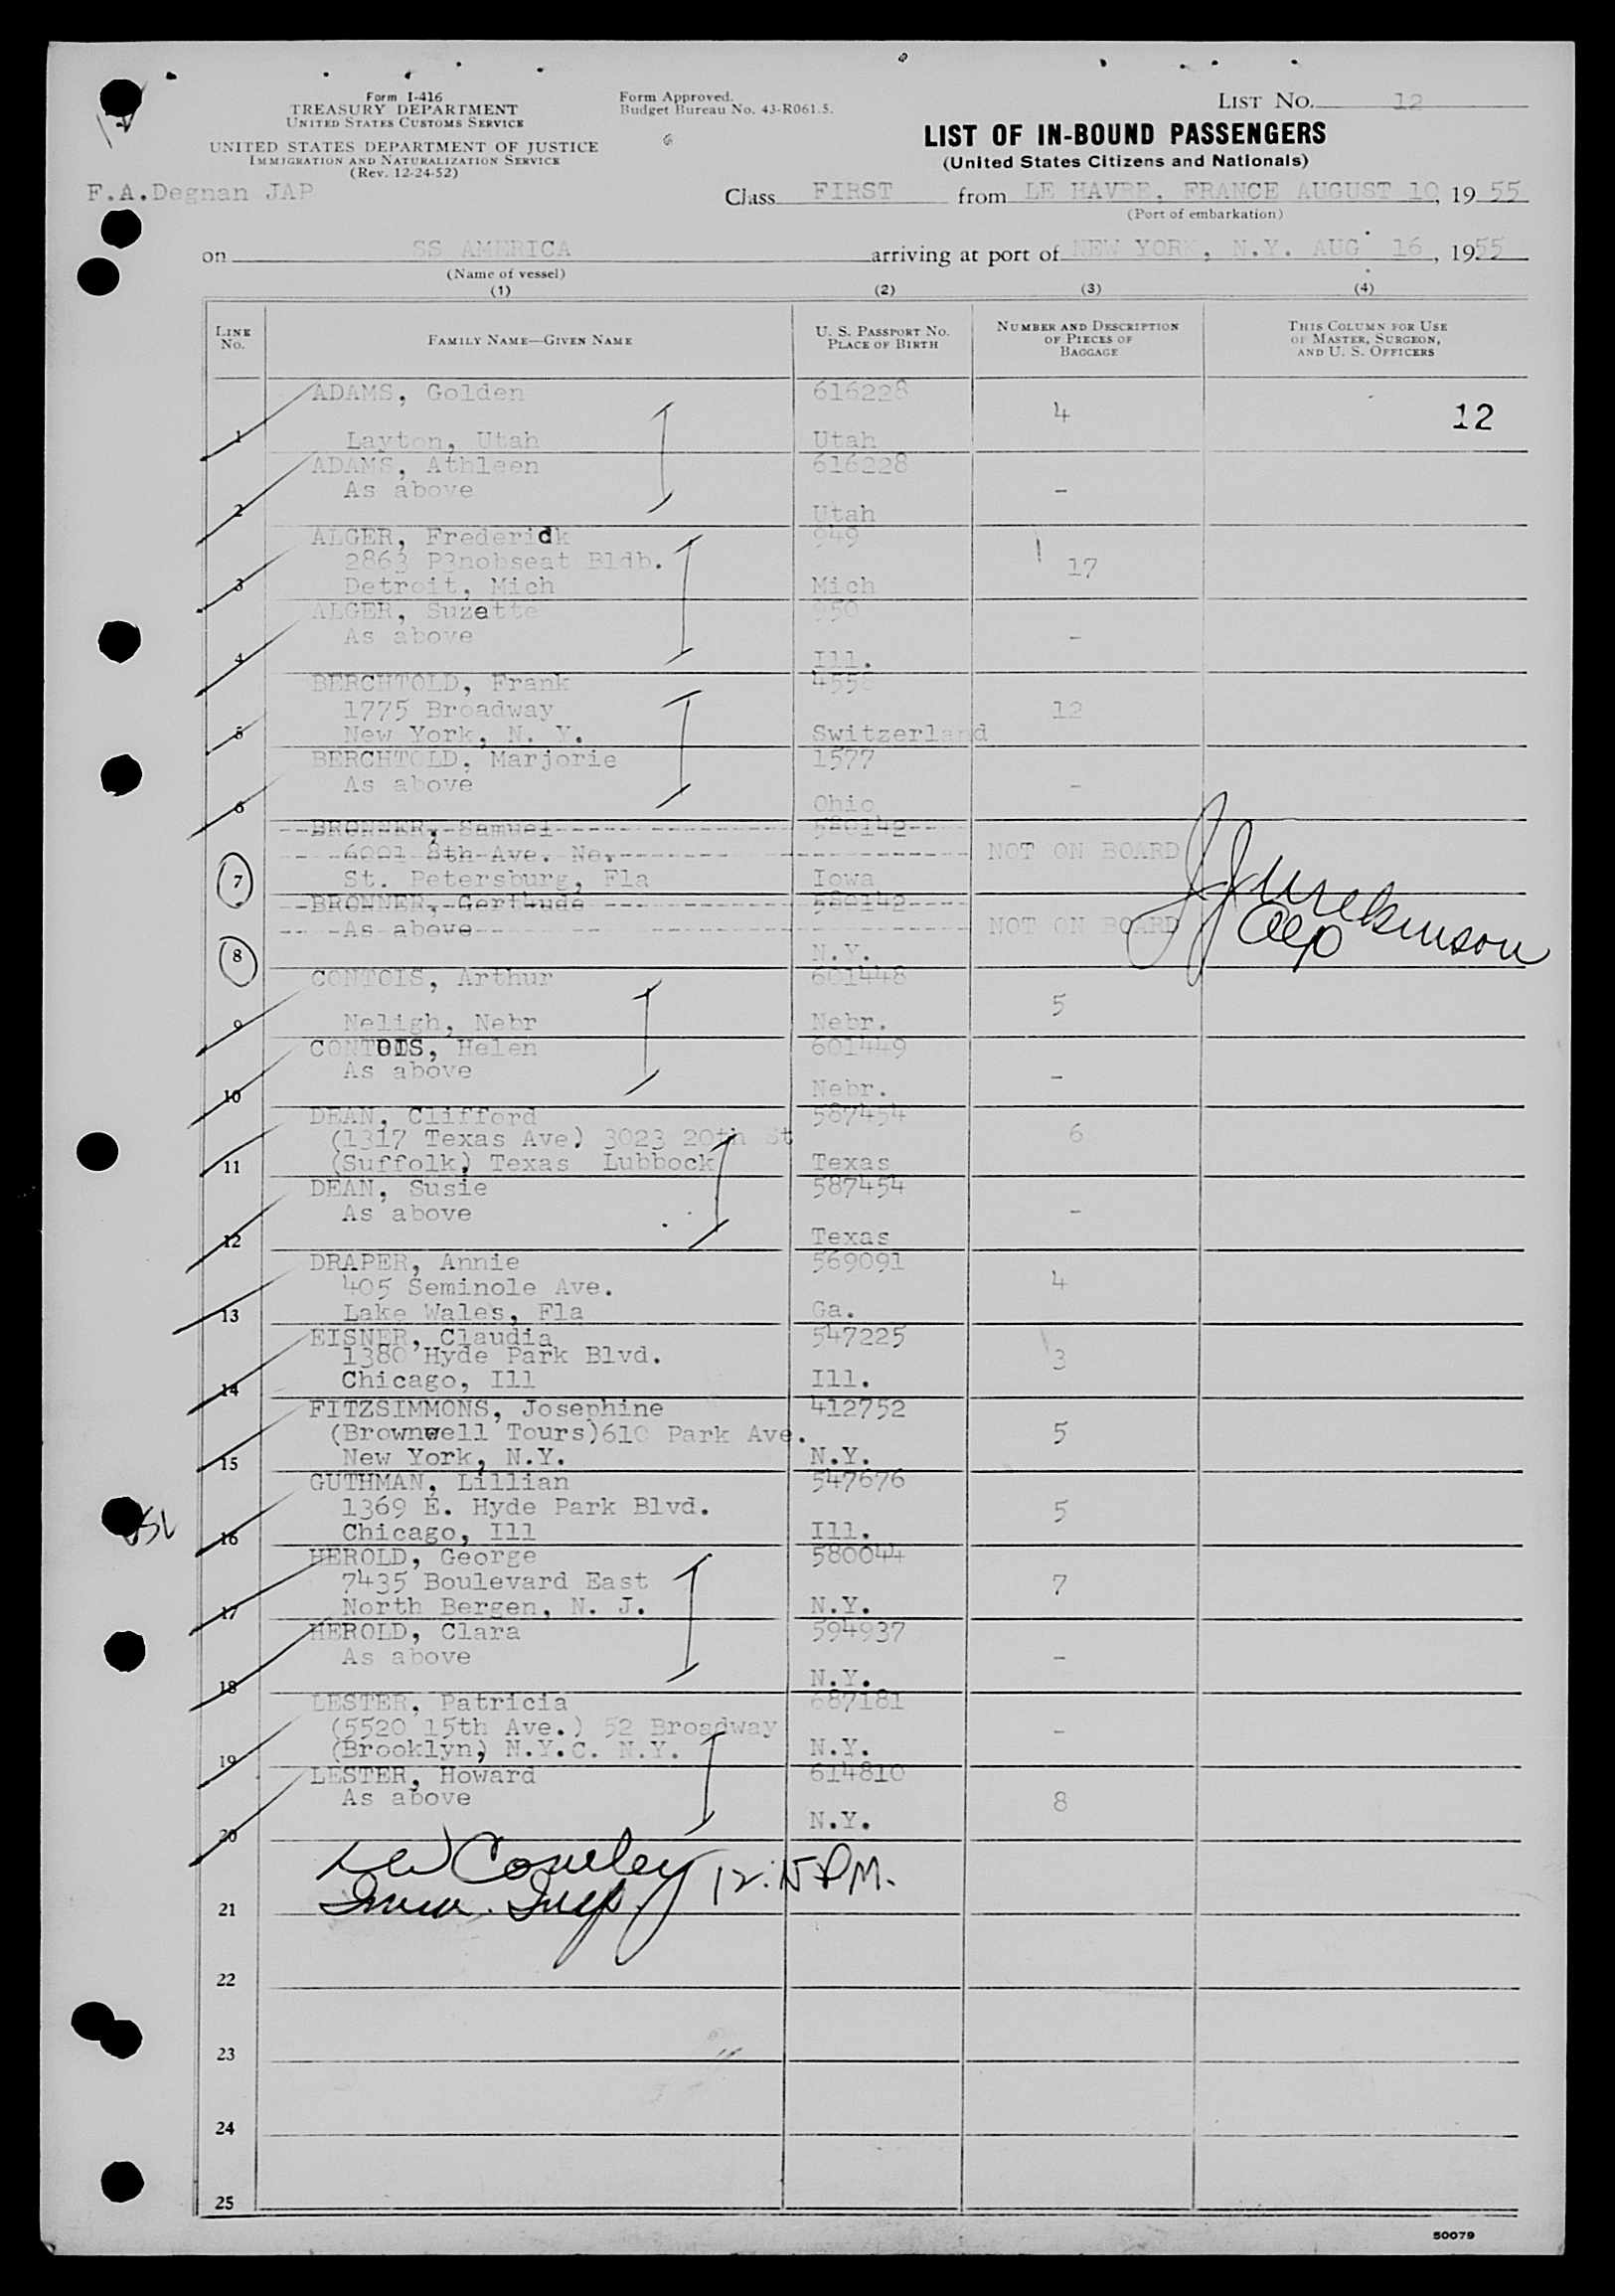 Form I-416
TREASURY DEPARTMENT
UNITED STATES CUSTOMS SERVICE
UNITED STATES DEPARTMENT OF JUSTICE
IMMIGRATION AND NATURALIZATION SERVICE
(Rev. 12-24-52)
Form Approved.
Budget Bureau No. 43-R061.5.
LIST NO. 12
LIST OF IN-BOUND PASSENGERS
(United States Citizens and Nationals)
F.A.Degnan JAP
Class FIRST from LE HAVRE, FRANCE AUGUST 10, 1955
(Port of embarkation)
on SS AMERICA arriving at port of NEW YORK, N.Y. AUG 16, 1955
(Name of vessel)
(1) (2) (3) (4)
LINE NO.
FAMILY NAME—GIVEN NAME
U. S. PASSPORT NO.
PLACE OF BIRTH
NUMBER AND DESCRIPTION
OF PIECES OF
BAGGAGE
THIS COLUMN FOR USE
OF MASTER, SURGEON,
AND U. S. OFFICERS
ADAMS, Golden 616228
4 12
1 Layton, Utah Utah
ADAMS, Athleen 616228
As above -
2 Utah
ALGER, Frederick 949
2863 P3nobseat Bldb. 17
3 Detroit, Mich Mich
ALGER, Suzette 950
As above -
4 Ill.
BERCHTOLD, Frank 4558
1775 Broadway 12
5 New York, N. Y. Switzerland
BERCHTOLD, Marjorie 1577
As above -
6 Ohio
BRONNER, Samuel 580142
6001 8th Ave. No. NOT ON BOARD
7 St. Petersburg, Fla Iowa
BRONNER, Gerthude 580142
As above NOT ON BOARD
8 N.Y.
CONTOIS, Arthur 601448
5
9 Neligh, Nebr Nebr.
CONTOIS, Helen 601449
As above -
10 Nebr.
DEAN, Clifford 587454
(1317 Texas Ave) 3023 20th St 6
11 (Suffolk) Texas Lubbock Texas
DEAN, Susie 587454
As above -
12 Texas
DRAPER, Annie 569091
405 Seminole Ave. 4
13 Lake Wales, Fla Ga.
EISNER, Claudia 547225
1380 Hyde Park Blvd. 3
14 Chicago, Ill Ill.
FITZSIMMONS, Josephine 412752
(Brownwell Tours)610 Park Ave. 5
15 New York, N.Y. N.Y.
GUTHMAN, Lillian 547676
1369 E. Hyde Park Blvd. 5
16 Chicago, Ill Ill.
HEROLD, George 580044
7435 Boulevard East 7
17 North Bergen, N. J. N.Y.
HEROLD, Clara 594937
As above -
18 N.Y.
LESTER, Patricia 687181
(5520 15th Ave.) 52 Broadway -
19 (Brooklyn) N.Y.C. N.Y. N.Y.
LESTER, Howard 614810
As above 8
20 N.Y.
12:15 PM.
21
22
23
24
25
50079